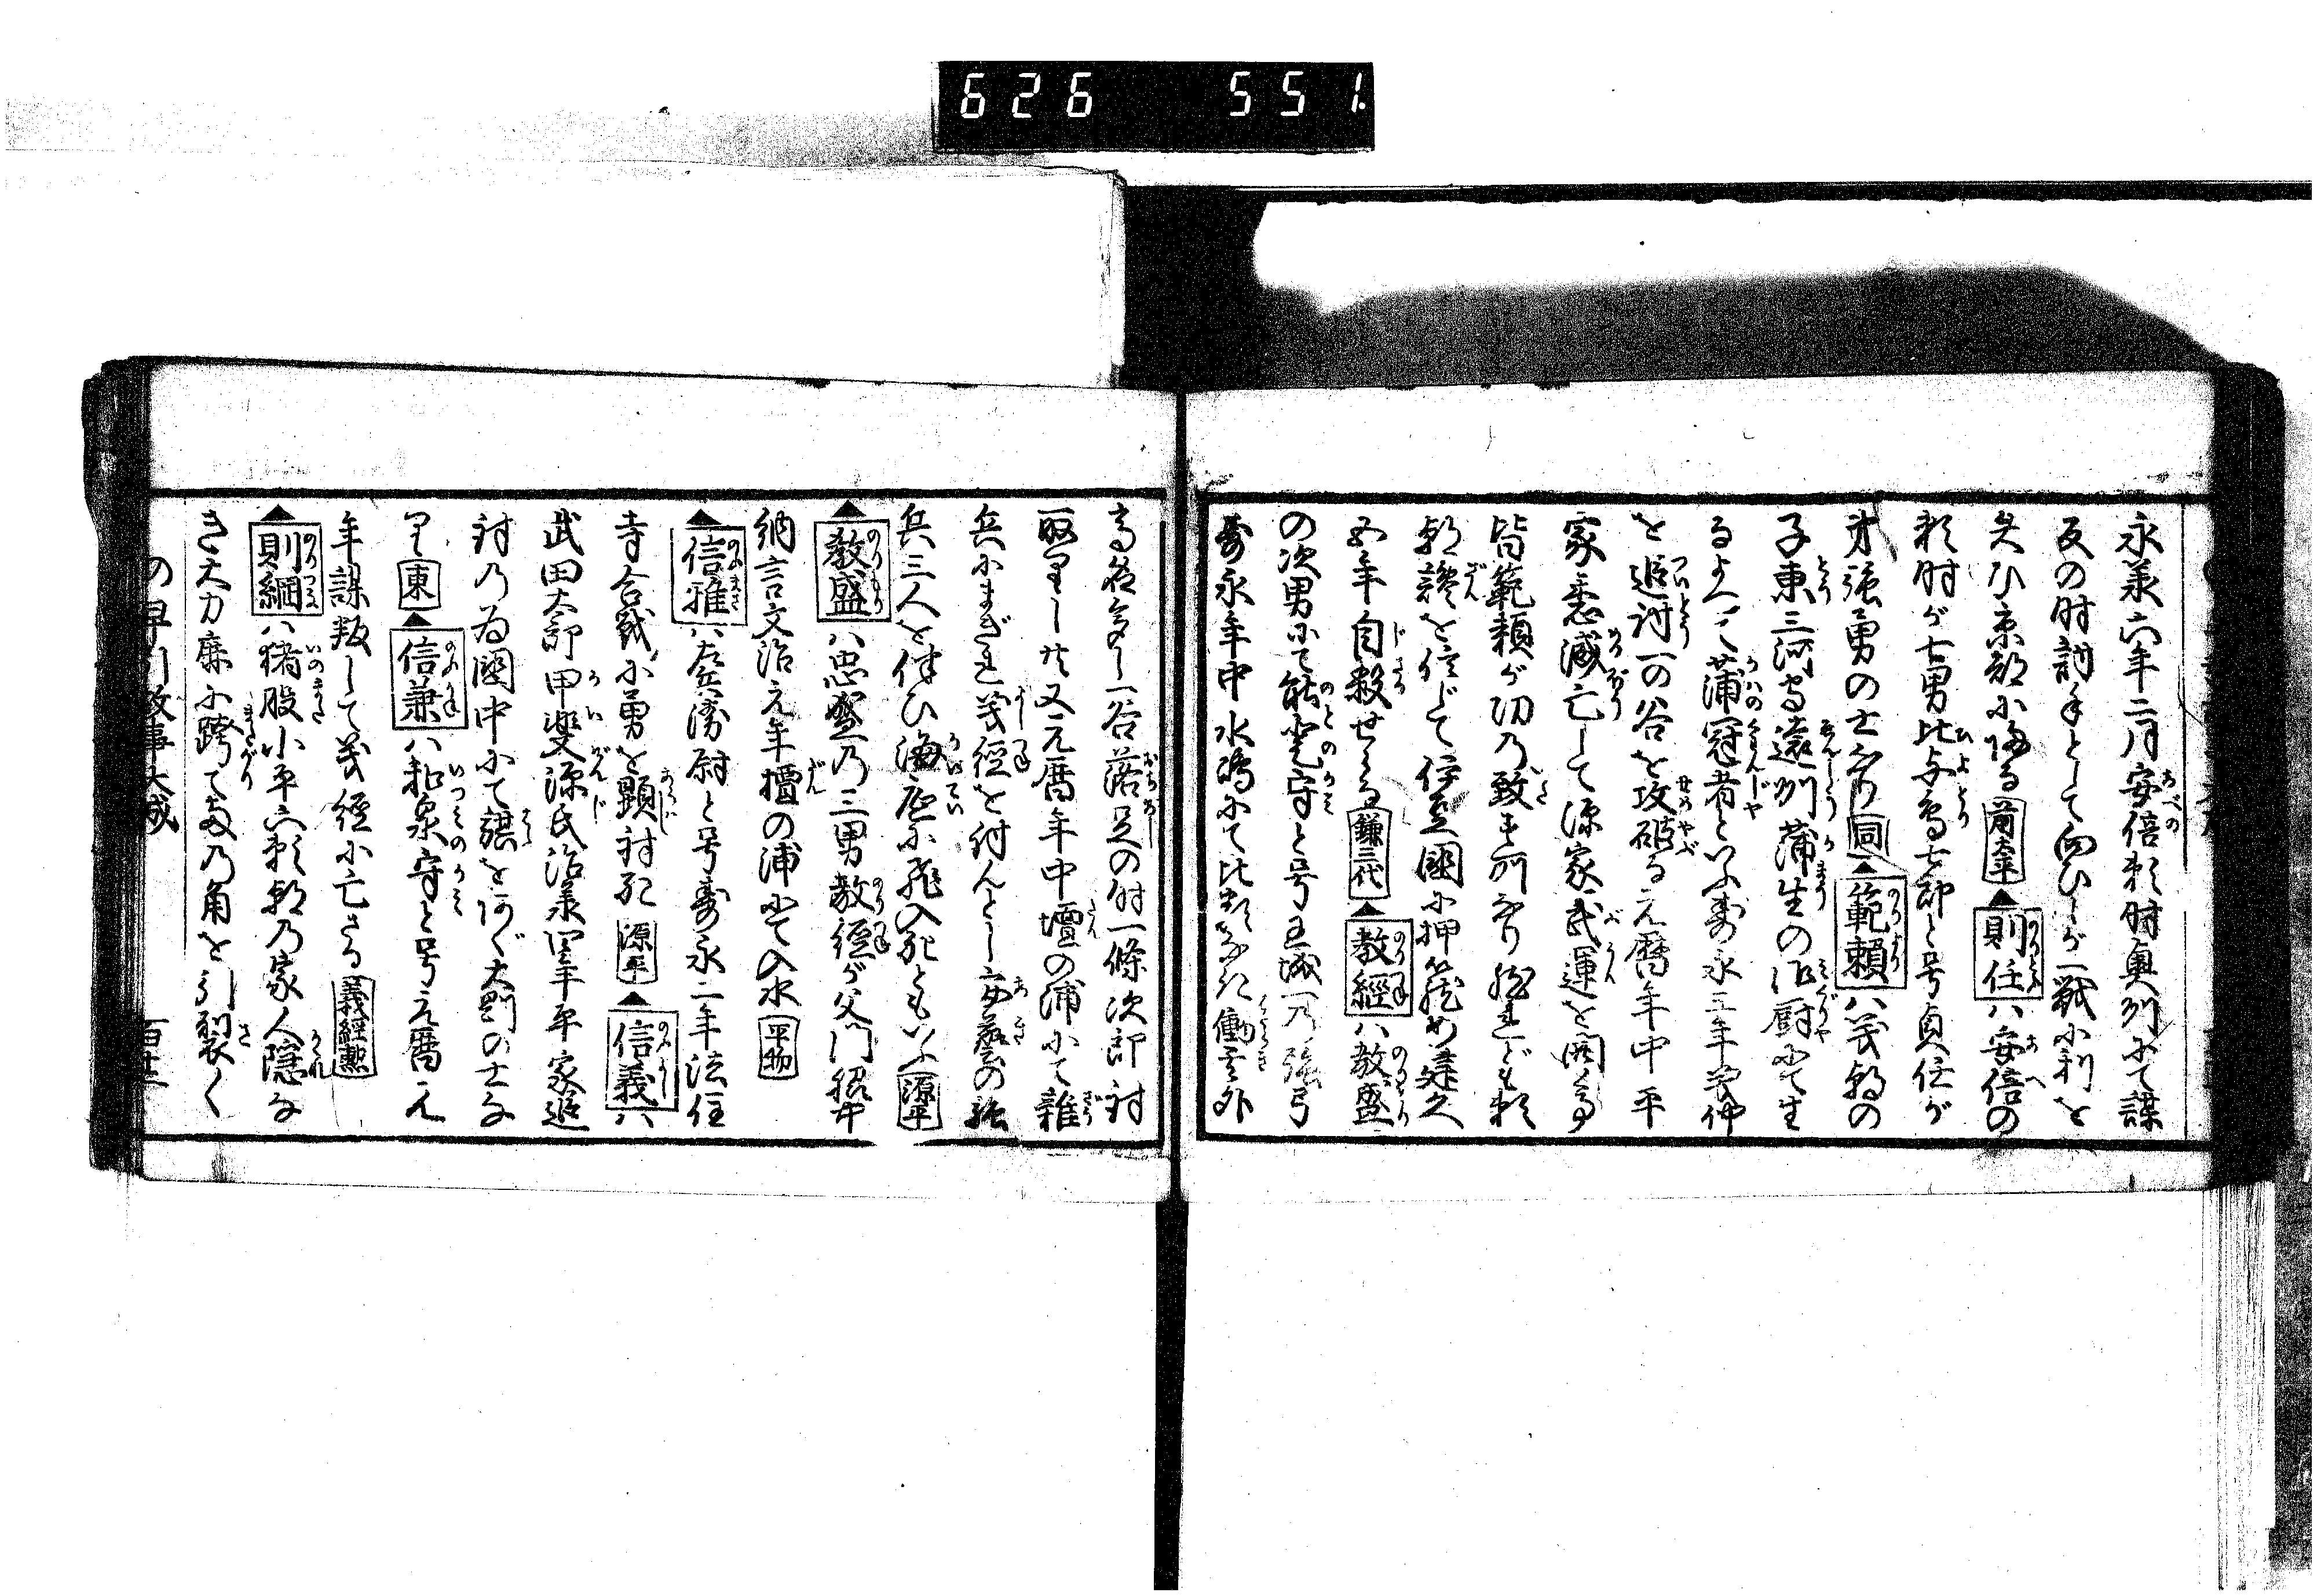 626 551.
永承六年二月安倍頼時奥州にて謀
反の時討手として向ひしが一戦に利を
失ひ京都に帰る 前太平 ▲則任ハ安倍の
頼時が七男比与鳥七郎と号貞任が
弟強勇の士なり 同 ▲範頼ハ義朝の
子東三河守遠州蒲生の御厨にて生
るよつて蒲冠者といふ寿永三年義仲
を追討一の谷を攻破る元暦年中平
家悉滅亡して源家武運を開く事
皆範頼が功の致す所なり然れども頼
朝讒を信じて伊豆国に押籠め建久
四年自殺せらる 鎌三代 ▲教經ハ教盛
の次男にて能登守と号王城一の強弓
寿永年中水嶋にて比類なき働其外
高名多し一谷落足の時一條次郎討
取りし共又元暦年中壇の浦にて雑
兵にまぎれ義経を討んとし安藝の強
兵三人を伴ひ海底に飛入死ともいふ 源平
▲教盛ハ忠盛の三男教經が父門脇中
納言文治元年檀の浦にて入水 平物
▲信雅ハ左兵衛尉と号寿永二年法住
寺合戦に勇を顕討死 源平 ▲信義ハ
武田太郎甲斐源氏治承四年平家追
討の為国中にて譲を何ぐ大剛の士な
り 東 ▲信兼ハ和泉守と号元暦元
年謀叛して義経に亡さる 義経勲
▲則綱ハ猪股小平六頼朝の家人隠な
き大力鹿に跨て両の角を引裂く
の 早引故事大成 百廿一